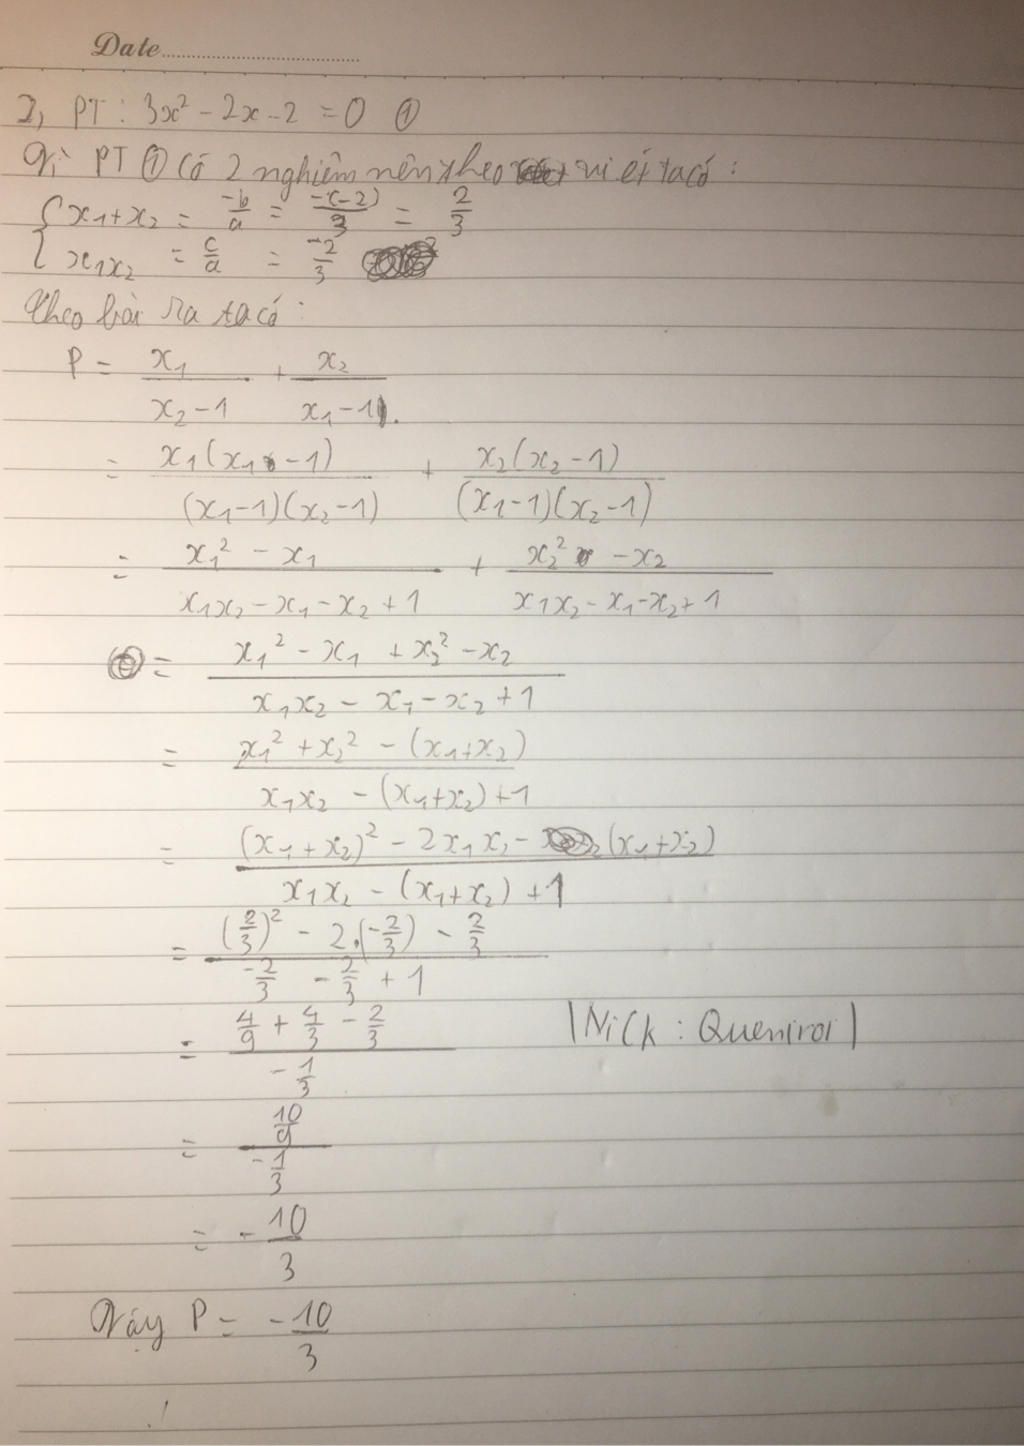 Date
2, PT : 3x² - 2x - 2 = 0 ①
Vì PT ① có 2 nghiệm nên theo vi ét ta có :
{ x₁+x₂ = -b/a = -(-2)/3 = 2/3
x₁x₂ = c/a = -2/3
Theo bài ra ta có :
P = x₁/(x₂-1) + x₂/(x₁-1)
= x₁(x₁-1)/((x₁-1)(x₂-1)) + x₂(x₂-1)/((x₁-1)(x₂-1))
= (x₁² - x₁)/(x₁x₂ - x₁ - x₂ + 1) + (x₂² - x₂)/(x₁x₂ - x₁ - x₂ + 1)
= (x₁² - x₁ + x₂² - x₂)/(x₁x₂ - x₁ - x₂ + 1)
= (x₁² + x₂² - (x₁+x₂))/(x₁x₂ - (x₁+x₂) + 1)
= ((x₁+x₂)² - 2x₁x₂ - (x₁+x₂))/(x₁x₂ - (x₁+x₂) + 1)
= ((2/3)² - 2.(-2/3) - 2/3)/(-2/3 - 2/3 + 1)
= (4/9 + 4/3 - 2/3)/(-1/3)
|Nick : Queniroi|
= (10/9)/(-1/3)
= -10/3
Vậy P = -10/3